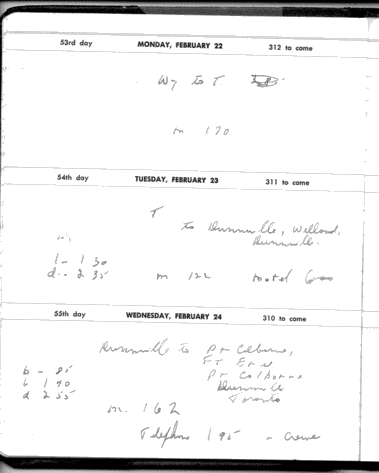 53rd day MONDAY, FEBRUARY 22 312 to come
Wy to T
m 170
54th day TUESDAY, FEBRUARY 23 311 to come
T
to Dunnville, Welland,
Dunnville.
l - 1 30
d - 2 35 m 122 motel 6 00
55th day WEDNESDAY, FEBRUARY 24 310 to come
Dunnville to Pt Colborne,
b - 85 Ft Erie
l 1 70 Pt Colborne
d 2 55 Dunnville
Toronto
m. 162
Telephone 1 95 - Crewe